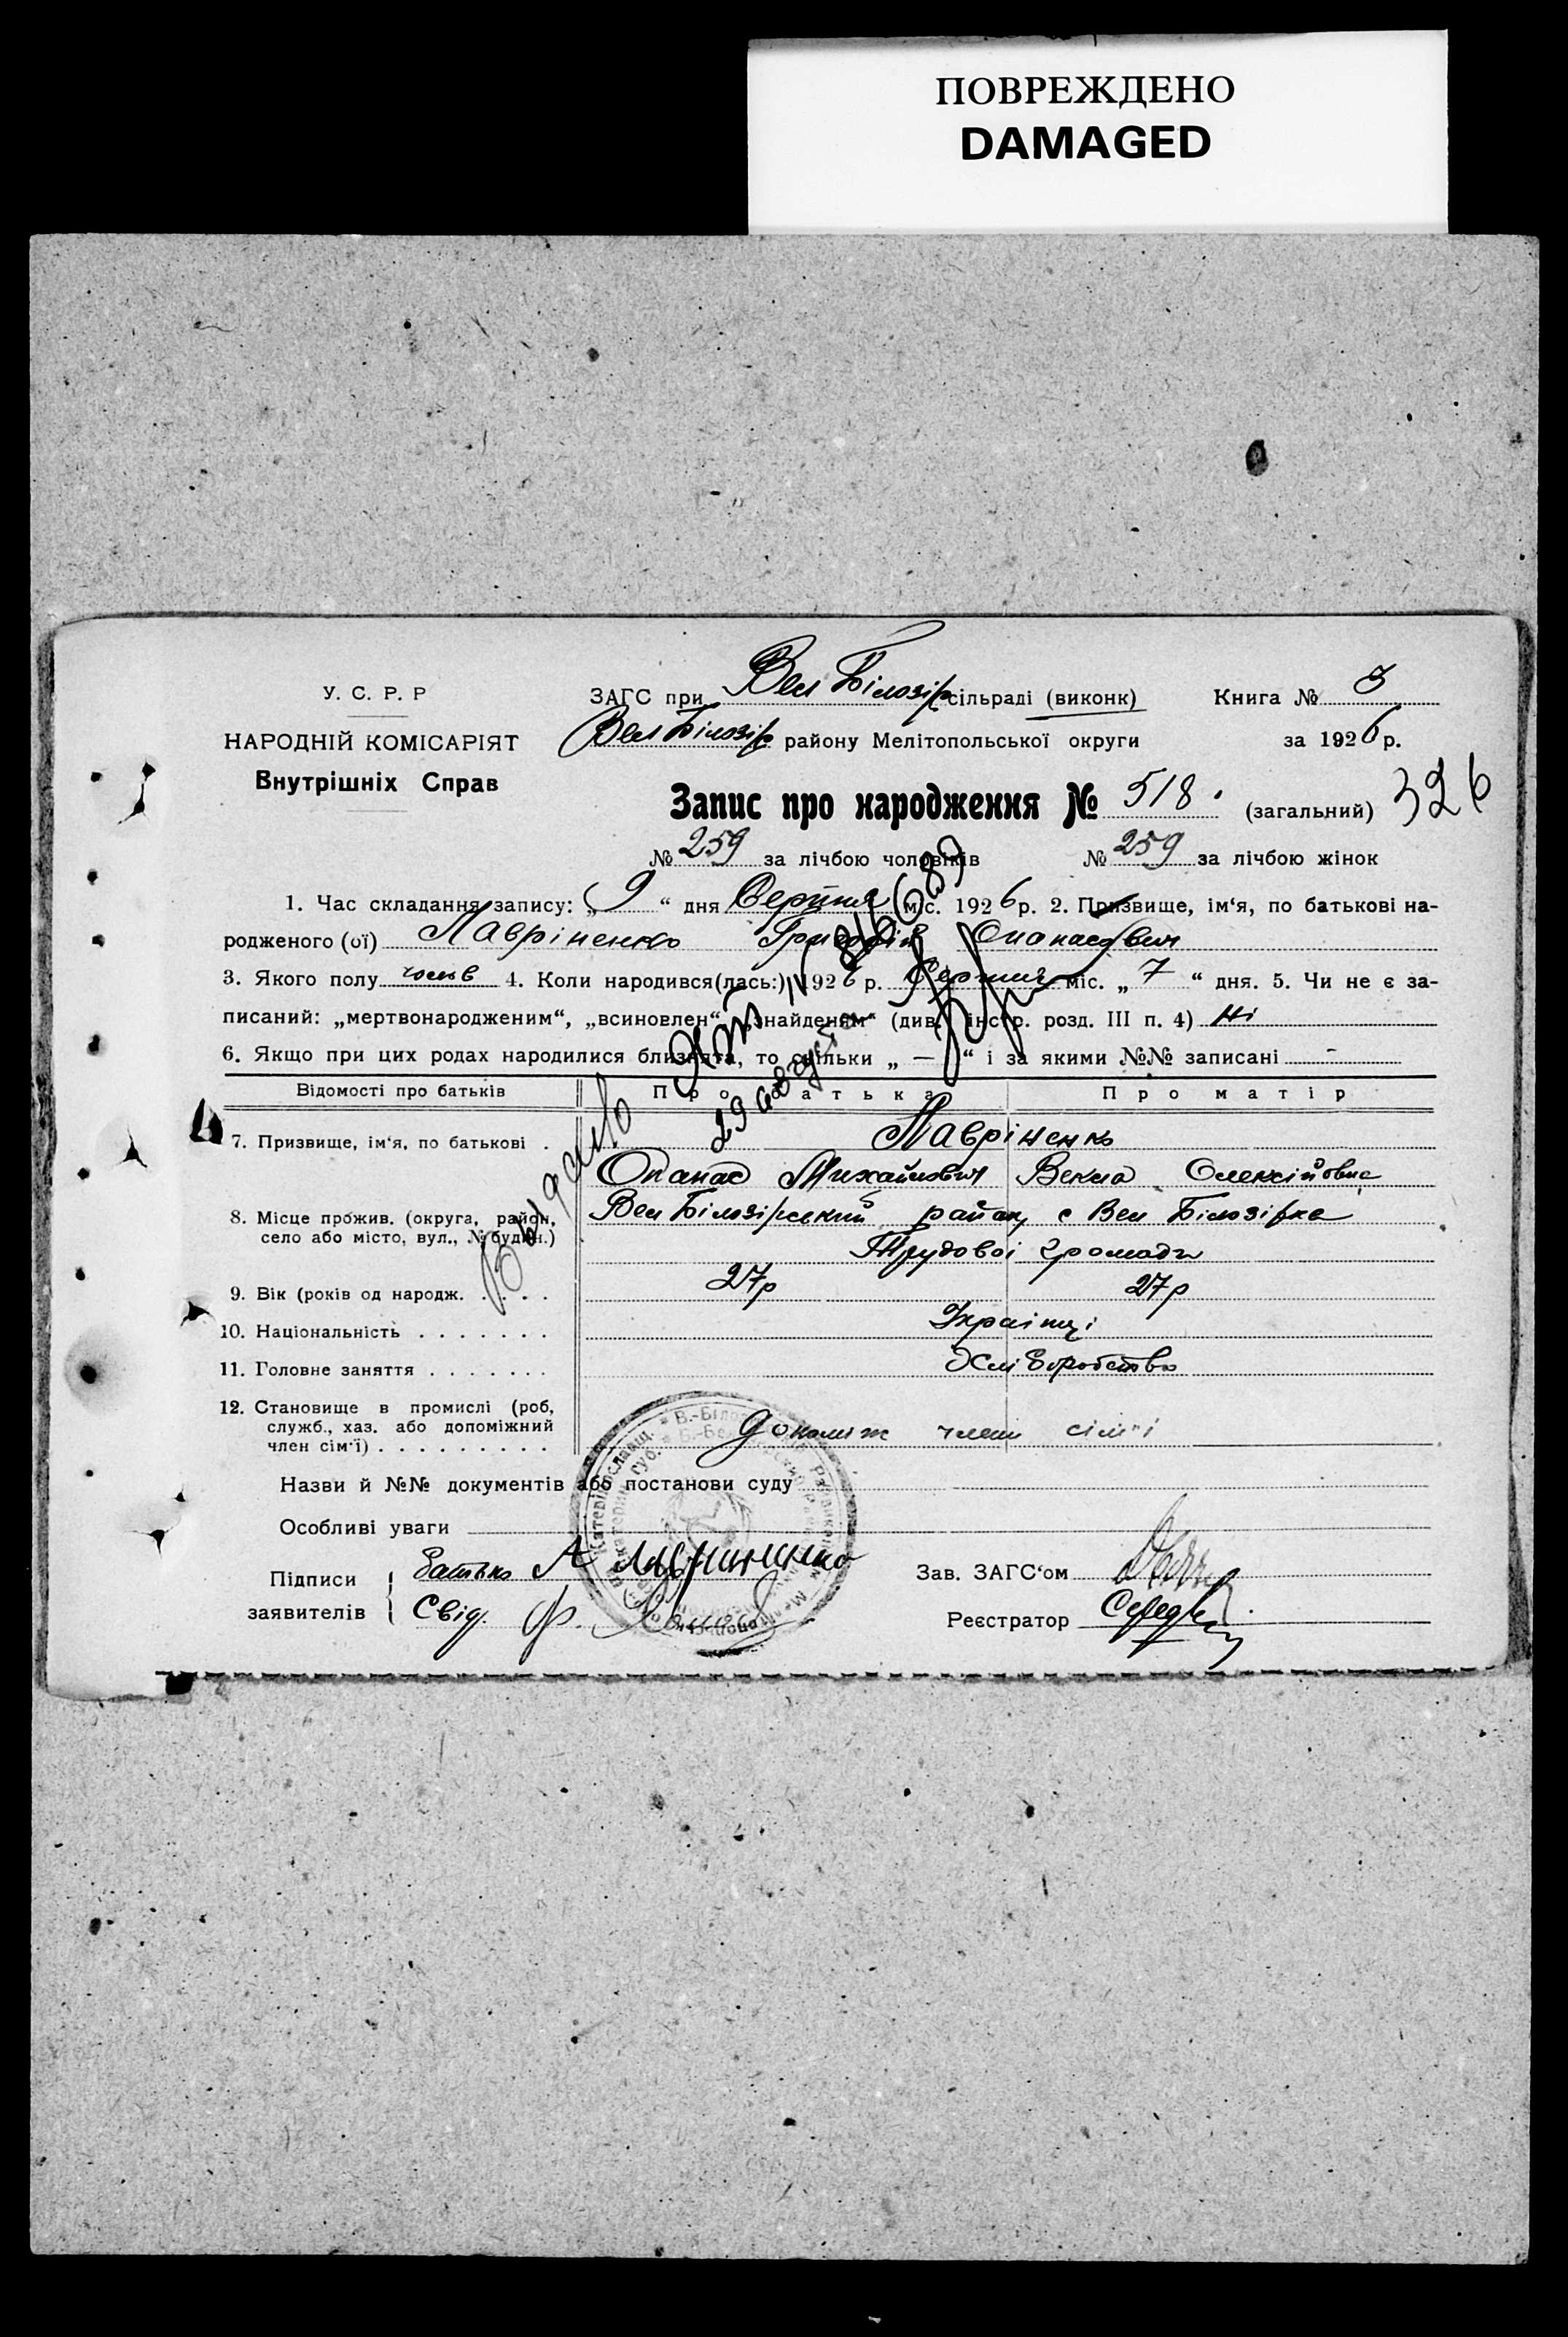 ПОВРЕЖДЕНО
DAMAGED
У. С. Р. Р
НАРОДНІЙ КОМІСАРІЯТ
Внутрішніх Справ
ЗАГС при Вел Білозір сільраді (виконк)
Вел Білозір району Мелітопольської округи
Книга № 3
за 1926 р.
Запис про народження № 518. (загальний) 326
№ 259 за лічбою чоловіків № 259 за лічбою жінок
1. Час складання запису: „9“ дня Серпня міс. 1926 р. 2. Призвище, ім‘я, по батькові на-
родженого (ої) Лавріненко Григорій Опанасович
3. Якого полу чолов 4. Коли народився(лась:) 1926 р. Серпня міс. „7“ дня. 5. Чи не є за-
писаний: „мертвонародженим“, „всиновлен“, „знайденям“ (див. інстр. розд. III п. 4) Ні
6. Якщо при цих родах народилися близнята, то скільки „—“ і за якими №№ записані -
Выдано
29 августа
Відомості про батьків Про батька Про матір
7. Призвище, ім‘я, по батькові . Лавріненко
Опанас Михайлович Векла Олексійовна
8. Місце прожив. (округа, район, село або місто, вул., № будин.) Вел Білозірський район с Вел Білозірка
Трудової громади
9. Вік (років од народж. . . . . 27р 27р
10. Національність . . . . . . . Українці
11. Головне заняття . . . . . . . Хліборобство
12. Становище в промислі (роб,
служб., хаз. або допоміжний
член сім‘ї) . . . . . . . . . допоміж члени сім"ї
Назви й №№ документів або постанови суду
Особливі уваги
Підписи
заявителів
Батько А Лавриненко
Свід. Ф.
Зав. ЗАГС‘ом
Реєстратор